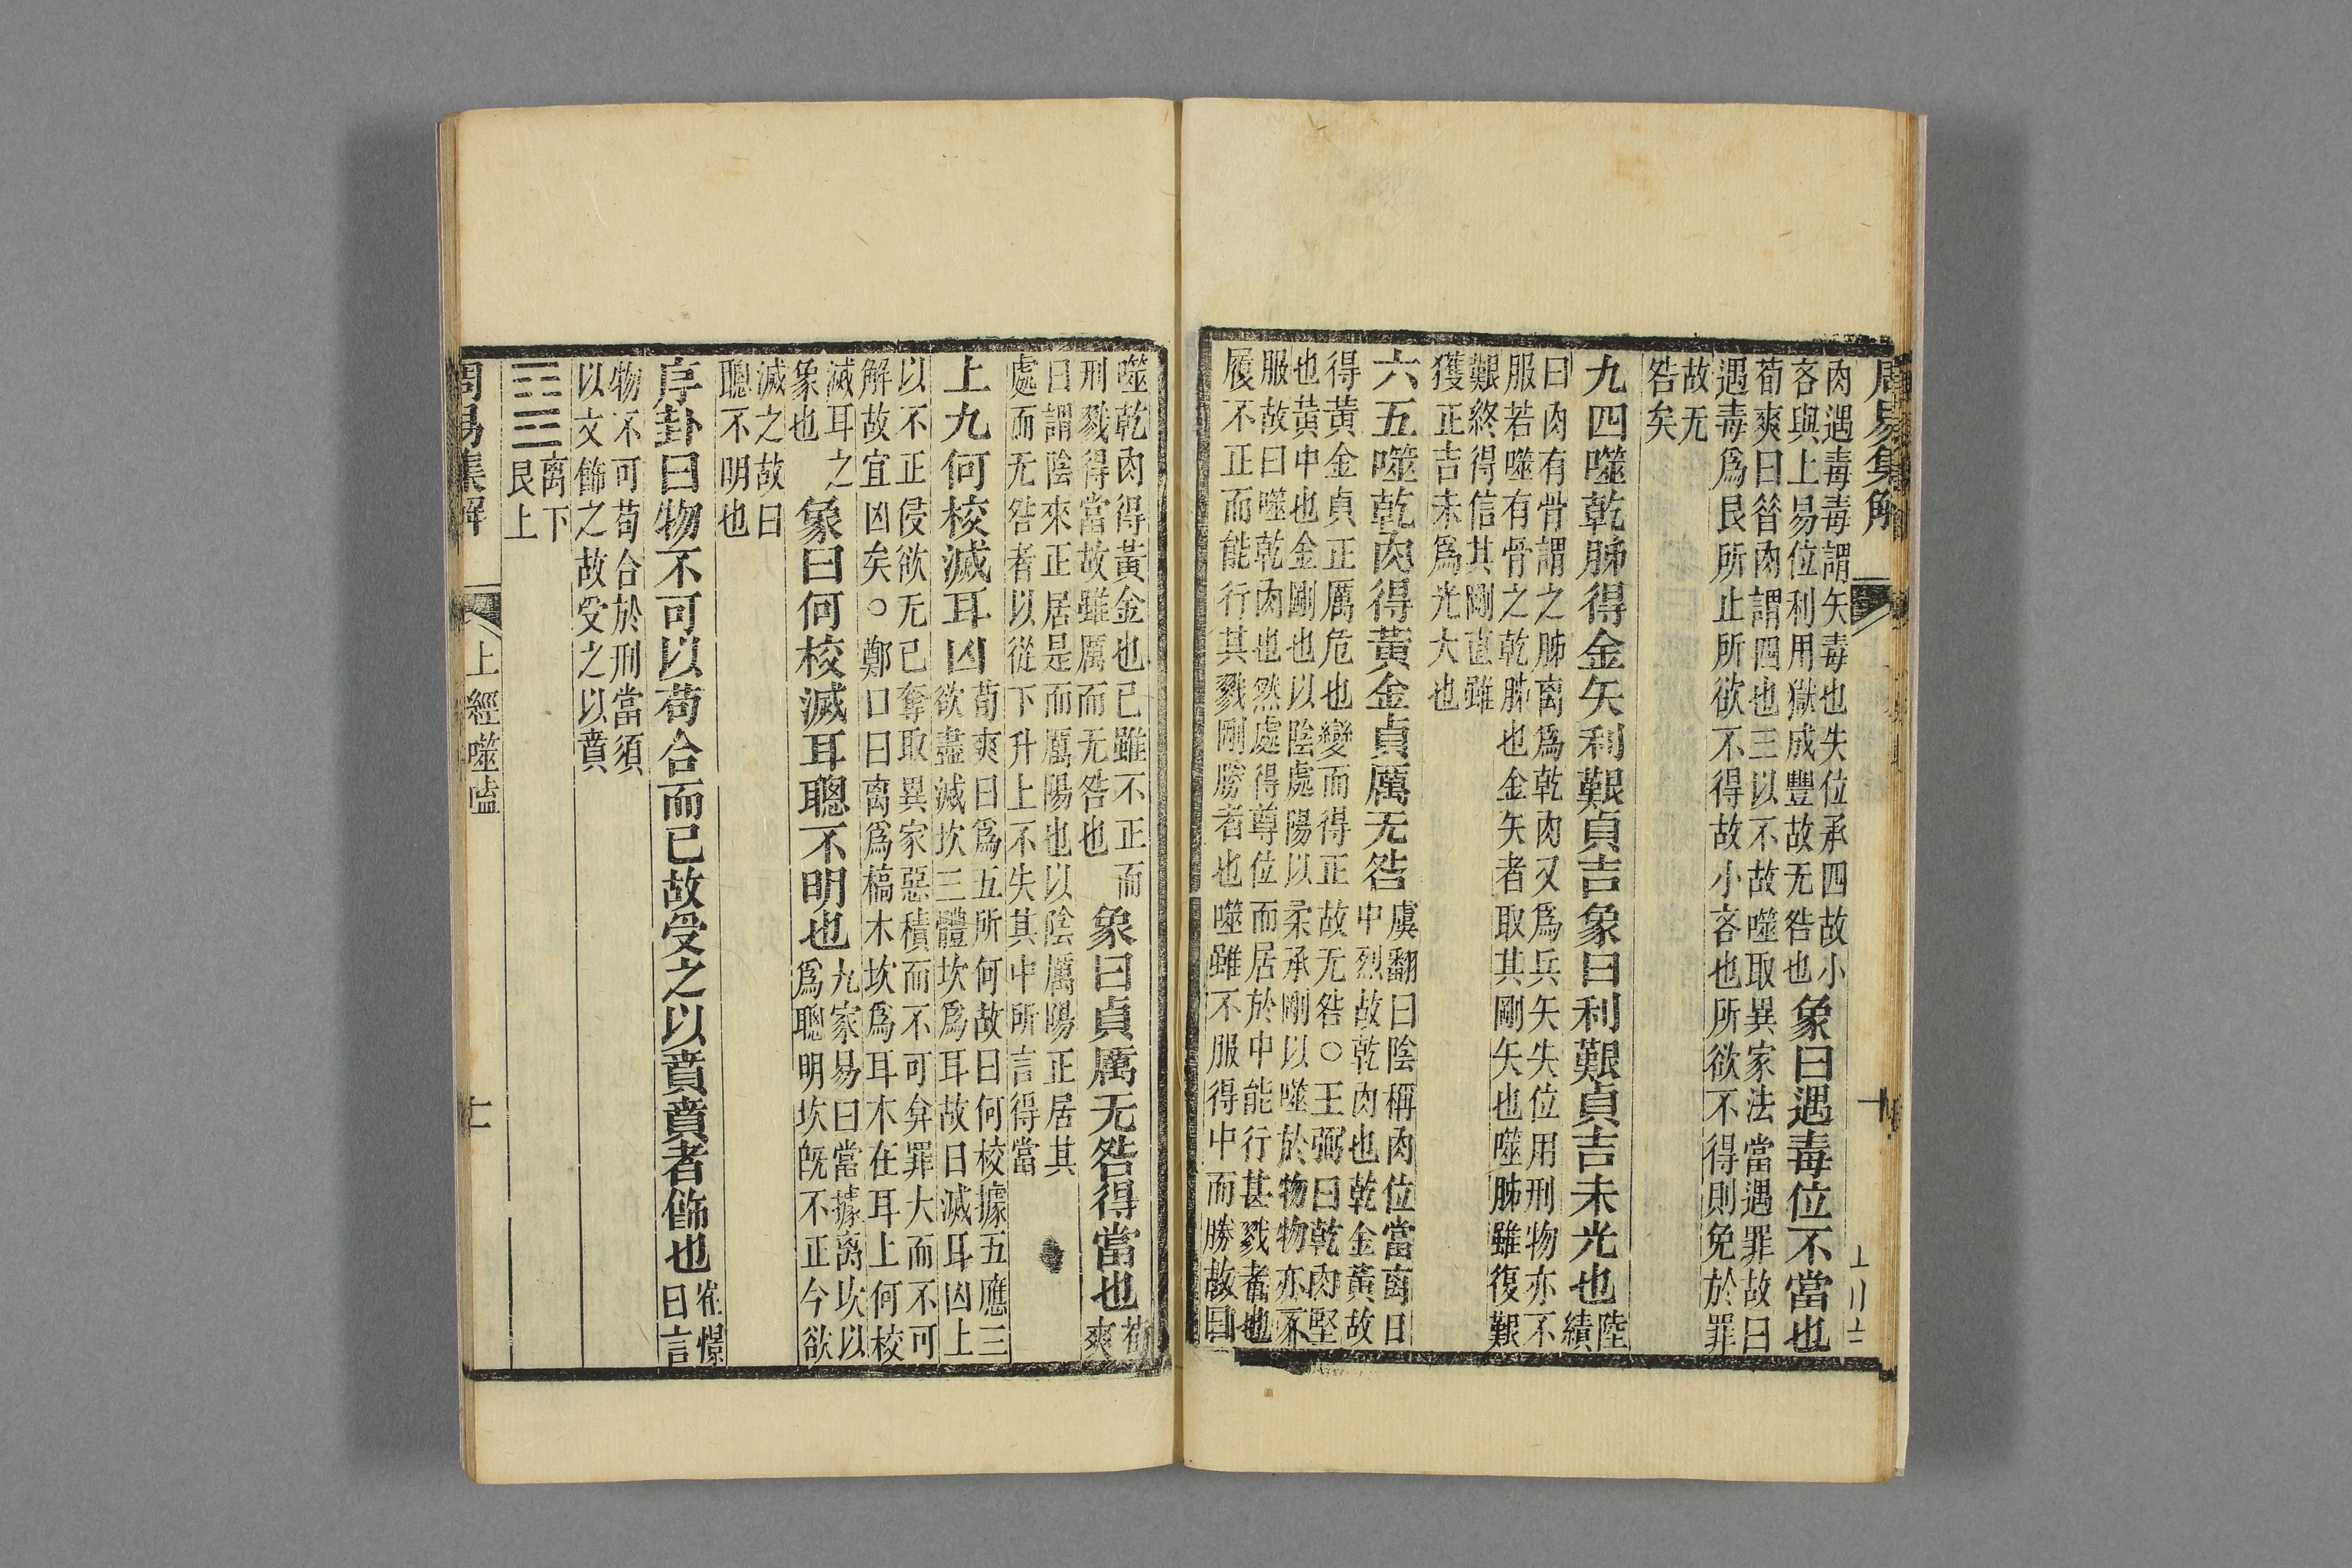 周易集解
肉遇毒毒謂矢毒也失位承四故小
吝與上易位利用獄成豐故无咎也
象曰遇毒位不當也
荀爽曰昝肉謂四也三以不故噬取異家法當遇罪故曰
遇毒爲艮所止所欲不得故小吝也所欲不得則免於罪
故无
咎矣
九四噬乾胏得金矢利艱貞吉象曰利艱貞吉未光也
陸
績
曰肉有骨謂之胏离爲乾肉又爲兵矢失位用刑物亦不
服若噬有骨之乾胏也金矢者取其剛矢也噬胏雖復艱
艱終得信其剛直雖
獲正吉未爲光大也
六五噬乾肉得黃金貞厲无咎
虞翻曰陰稱肉位當离日
中烈故乾肉也乾金黃故
得黃金貞正厲危也變而得正故无咎○王弼曰乾肉堅
也黃中也金剛也以陰處陽以柔承剛以噬於物物亦不
服故曰噬乾肉也然處得尊位而居於中能行甚戮者也
履不正而能行其戮剛勝者也噬雖不服得中而勝故曰
噬乾肉得黃金也已雖不正而
刑戮得當故雖厲而无咎也
象曰貞厲无咎得當也
荀
爽
曰謂陰來正居是而厲陽也以陰厲陽正居其
處而无咎者以從下升上不失其中所言得當
上九何校滅耳凶
荀爽曰爲五所何故曰何校據五應三
欲盡滅坎三體坎爲耳故曰滅耳凶上
以不正侵欲无已奪取異家惡積而不可弇罪大而不可
解故宜凶矣○鄭口曰离爲槁木坎爲耳木在耳上何校
滅耳之
象也
象曰何校滅耳聰不明也
九家易曰當據离坎以
爲聰明坎旣不正今欲
滅之故曰
聰不明也
序卦曰物不可以苟合而已故受之以賁賁者飾也
崔憬
曰言
物不可苟合於刑當須
以文飾之故受之以賁
离下
艮上
周易集解
上經噬嗑